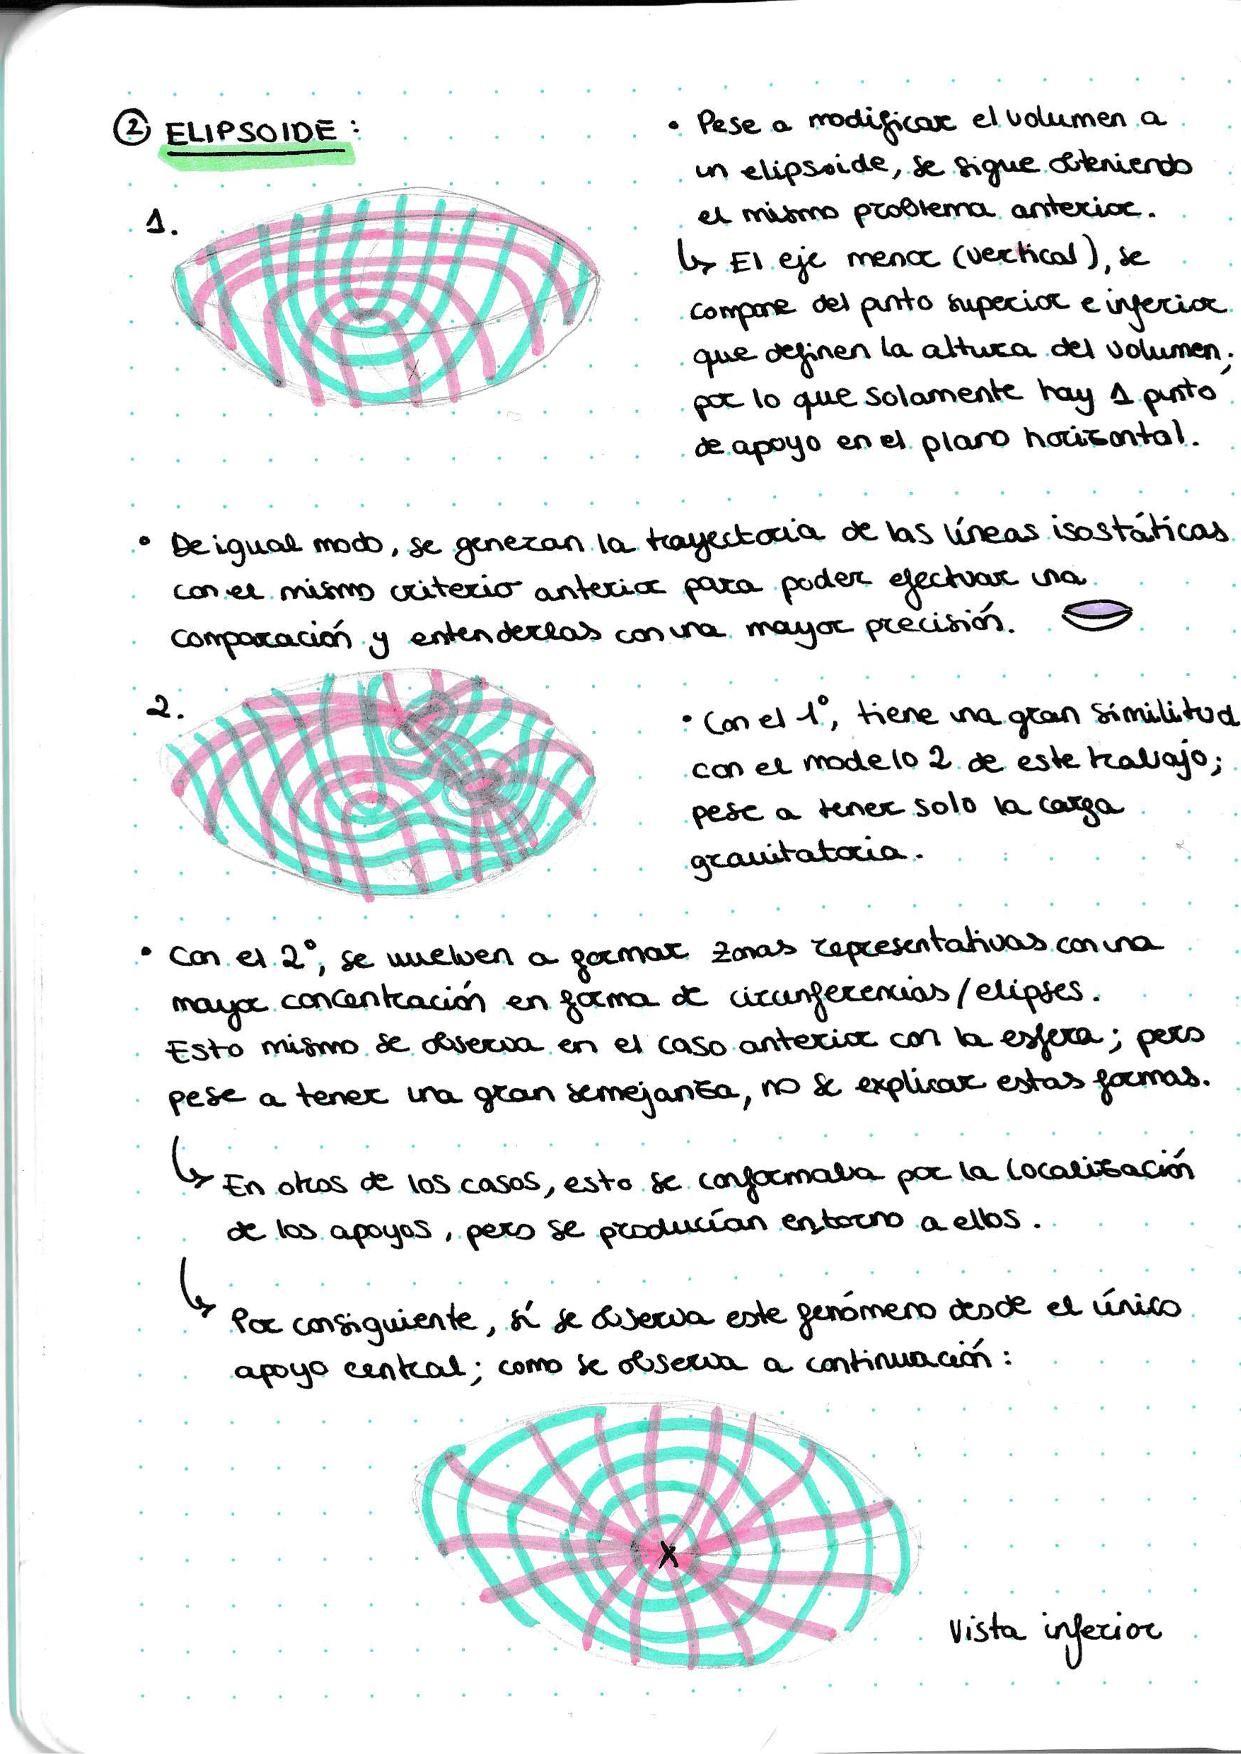 ② ELIPSOIDE:
1.
• Pese a modificar el volumen a
un elipsoide, se sigue obteniendo
el mismo problema anterior.
↳ El eje menor (vertical), se
compone del punto superior e inferior
que definen la altura del volumen;
por lo que solamente hay 1 punto
de apoyo en el plano horizontal.
• De igual modo, se generan la trayectoria de las líneas isostáticas
con el mismo criterio anterior para poder efectuar una
comparación y entenderlas con una mayor precisión.
2.
• Con el 1º, tiene una gran similitud
con el modelo 2 de este trabajo;
pese a tener solo la carga
gravitatoria.
• Con el 2º, se vuelven a formar zonas representativas con una
mayor concentración en forma de circunferencias/elipses.
Esto mismo se observa en el caso anterior con la esfera; pero
pese a tener una gran semejanza, no se explicar estas formas.
↳ En otros de los casos, esto se conformaba por la localización
de los apoyos, pero se producían entorno a ellos.
↳ Por consiguiente, sí se observa este fenómeno desde el único
apoyo central; como se observa a continuación:
X
Vista inferior